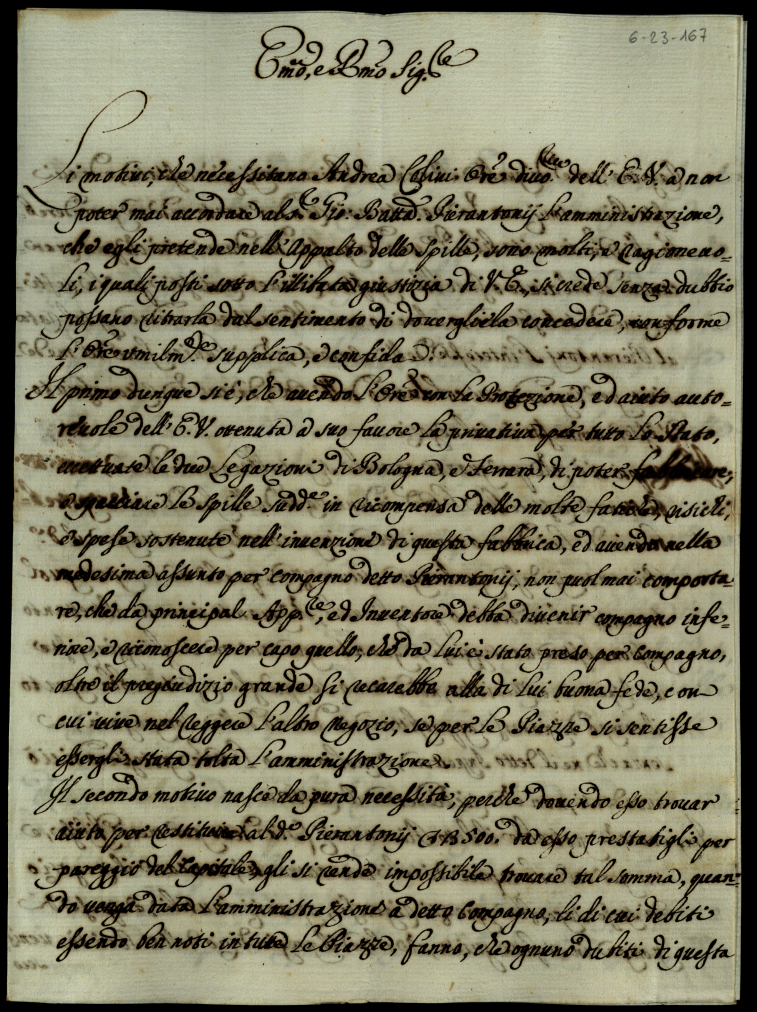 6-23-167
Em̃o, e Rm̃o Sig.re
Li motivi, che necessitano Andrea Casini Ore divo.mo dell' E. V. a non
poter mai accordare al Sr. Gio: Batta Pierantonij l'amministrazione,
che egli pretende nell'Appalto delle Spille, sono molti, e ragionevo-
li, i quali posti sotto l'illibata giustizia di V. E., si crede senza dubbio
possano ritrarla dal sentimento di dovergliela concedere, conforme
l'Ore umilm.te supplica, e confida.
Il primo dunque si è, che avendo l'Ore con la Protezione, ed aiuto auto-
revole dell' E. V. ottenuta a suo favore la privativa per tutto lo Stato,
eccettuate le due Legazioni di Bologna, e Ferrara, di poter fabbricare,
e spacciare le Spille sudd.e in ricompensa delle molte fatiche, rischi,
e spese sostenute nell'invenzione di questa fabbrica, ed avendo nella
medesima assunto per compagno detto Pierantonij, non puol mai comporta-
re, che da principal App.re, ed Inventore debba divenir compagno infe-
riore, e riconoscere per capo quello, che da lui è stato preso per Compagno,
oltre il pregiudizio grande si recarebbe alla di lui buona fede, con
cui vive nel reggere l'altro Negozio, se per le Piazze si sentisse
essergli stata tolta l'amministrazione.
Il secondo motivo nasce da pura necessità, perchè dovendo esso trovar
aiuto per restituire al d.o Pierantonij 500. da esso prestatigli per
pareggio del Capitale, gli si rende impossibile trovare tal somma, quan-
do venga data l'amministrazione a detto Compagno, li di cui debiti
essendo ben noti in tutte le Piazze, fanno, che ognuno dubiti di questa